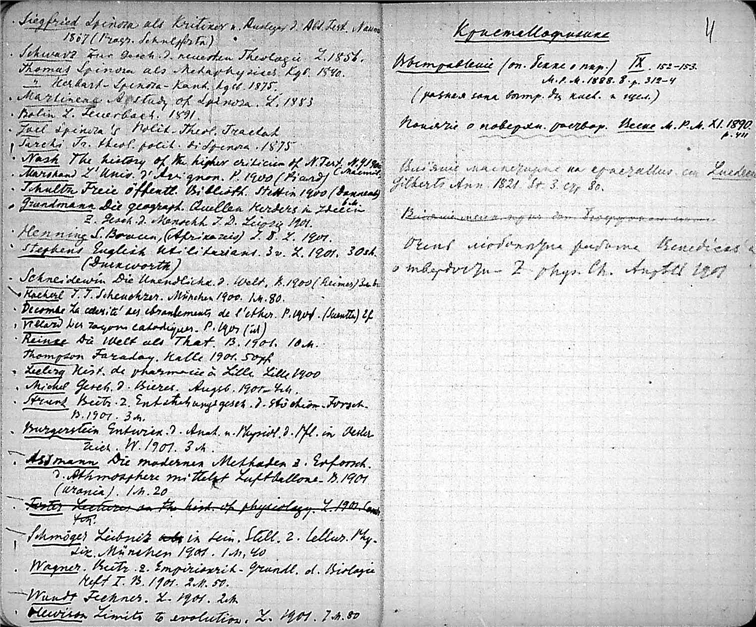 Siegfried Spinoza als Kritiker u. Ausleger d. Alt. Test.
1867 (Progr. Schulpforta)
Schwarz Zur Gesch. d. neuesten Theologie L. 1856.
Thomas Spinoza als Metaphysiker Kgb. 1840.
" Herbart-Spinoza-Kant. Kgb. 1875.
Martineau A study of Spinoza. L. 1883
Bolin L. Feuerbach. 1891.
Joel Spinoza's Polit. Theol. Tractat
tr. theol. polit. di Spinoza. 1875
Nash The history of the higher criticism of N. Test. N.Y.
Marchand L'Univ. d'Avignon. P. 1900 (Picard)
Schultz Freie öffentl. Biblioth. Stettin 1900
Grundmann Die geograph. Quellen Herders z. Ideen
z. Gesch. d. Menschh. I.D. Leipz. 1901.
Henning S. Bowen, (Afrikareis) I. D. L. 1901.
Stephens English Utilitarians. 3 v. L. 1901. 30 sh.
(Duckworth)
Schneidewin Die Unendlichk. d. Welt. B. 1900 (Reimer)
Kocherl J. J. Scheuchzer. München 1900. 1 M. 80.
Decombe La célérité des ébranlements de l'ether. P. 1900.
Villard Les rayons cathodiques. P. 1901 (id)
Reinke Die Welt als That. B. 1901. 10 M.
Thompson Faraday. Halle 1901. 50 pf
Leclerq Hist. de pharmacie à Lille Lille 1900
Michel Gesch. d. Bieres. Augsb. 1901. 4 M.
Strunz Beitr. z. Entstehungsgesch. d. stöchiom. Forsch.
B. 1901. 3 M.
Burgerstein Entwick. d. Anat. u. Physiol. d. Pfl. in Oester-
reich. W. 1901. 3 M.
Assmann Die modernen Methoden z. Erforsch.
d. Athmosphere mittelst Luftballone. B. 1901
(Urania). 1 M. 20
Foster Lectures on the hist. of physiology L. 1901.
Schmöger Leibniz in sein. Stell. z. tellur. Phy-
sik. München 1901. 1 M. 40
Wagner. Beitr. z. Empiriokrit. Grundl. d. Biologie
Heft I. B. 1901. 2 M. 50.
Wundt Fechner. L. 1901. 2 M
Hewison Limits to evolution. L. 1901. 7 M. 80
4
Кристаллофизика
Выветривание (оп. Бекке о пар.) IX. 152-153.
M.P.M. 1888. 8. p. 312-4
(разная зона
Понятие о поверхн. раствор. Becke M.P.M. XI. 1890.
p.
Влияние магнетизма на кристалл. см
Gilberts Ann. 1821. St. 3. стр 80.
Влияние
Очень любопытна работа Benedicks'a
о твердости - Z. phys. Ch. 1901